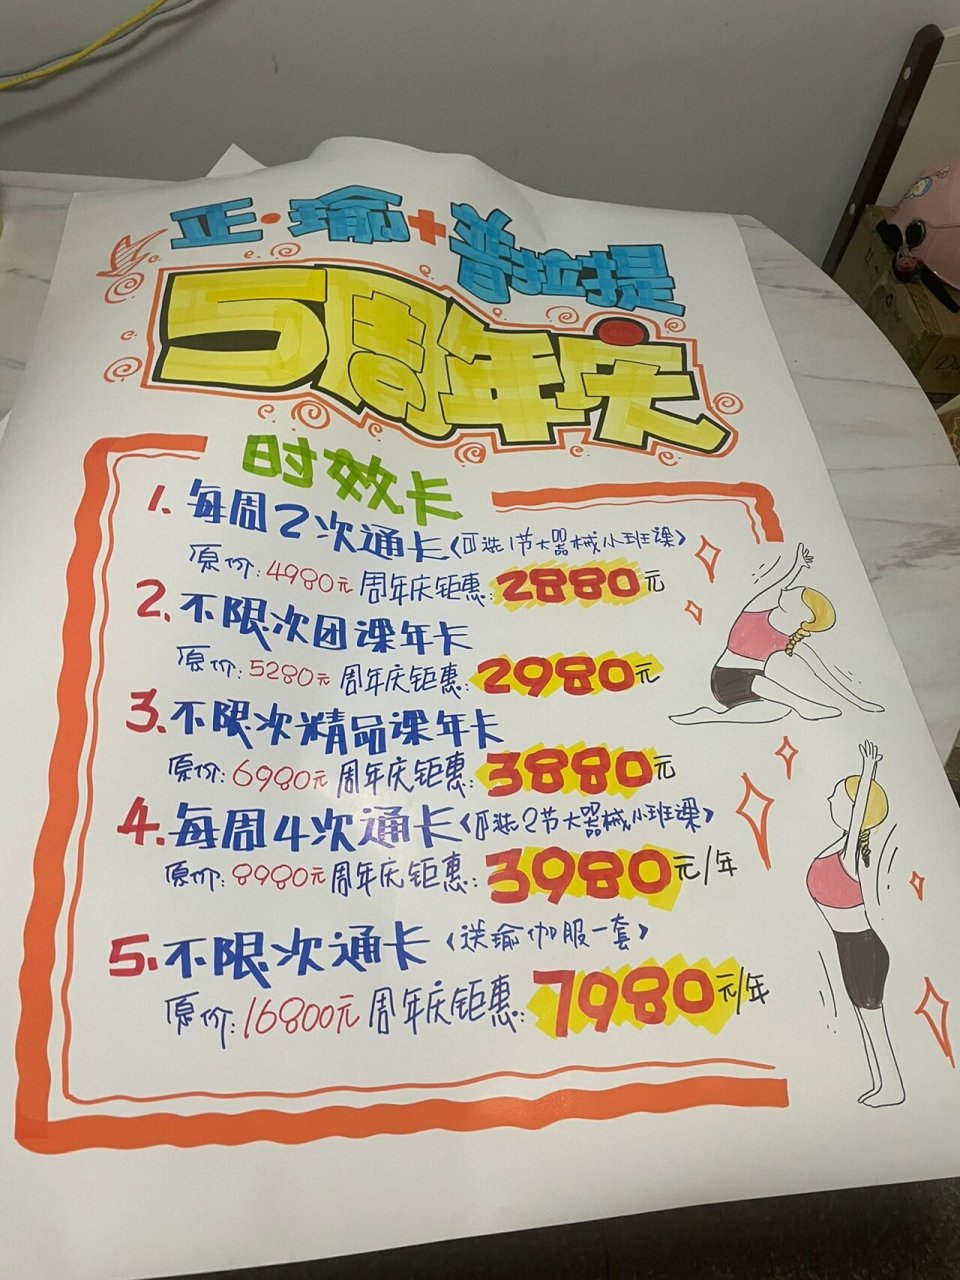 正·瑜+普拉提
5周年庆
时效卡
1. 每周2次通卡〈可选1节大器械小班课〉
原价:4980元 周年庆钜惠:2880元
2. 不限次团课年卡
原价:5280元 周年庆钜惠:2980元
3. 不限次精品课年卡
原价:6980元 周年庆钜惠:3880元
4. 每周4次通卡〈可选2节大器械小班课〉
原价:8980元 周年庆钜惠:3980元/年
5. 不限次通卡〈送瑜伽服一套〉
原价:16800元 周年庆钜惠:7980元/年